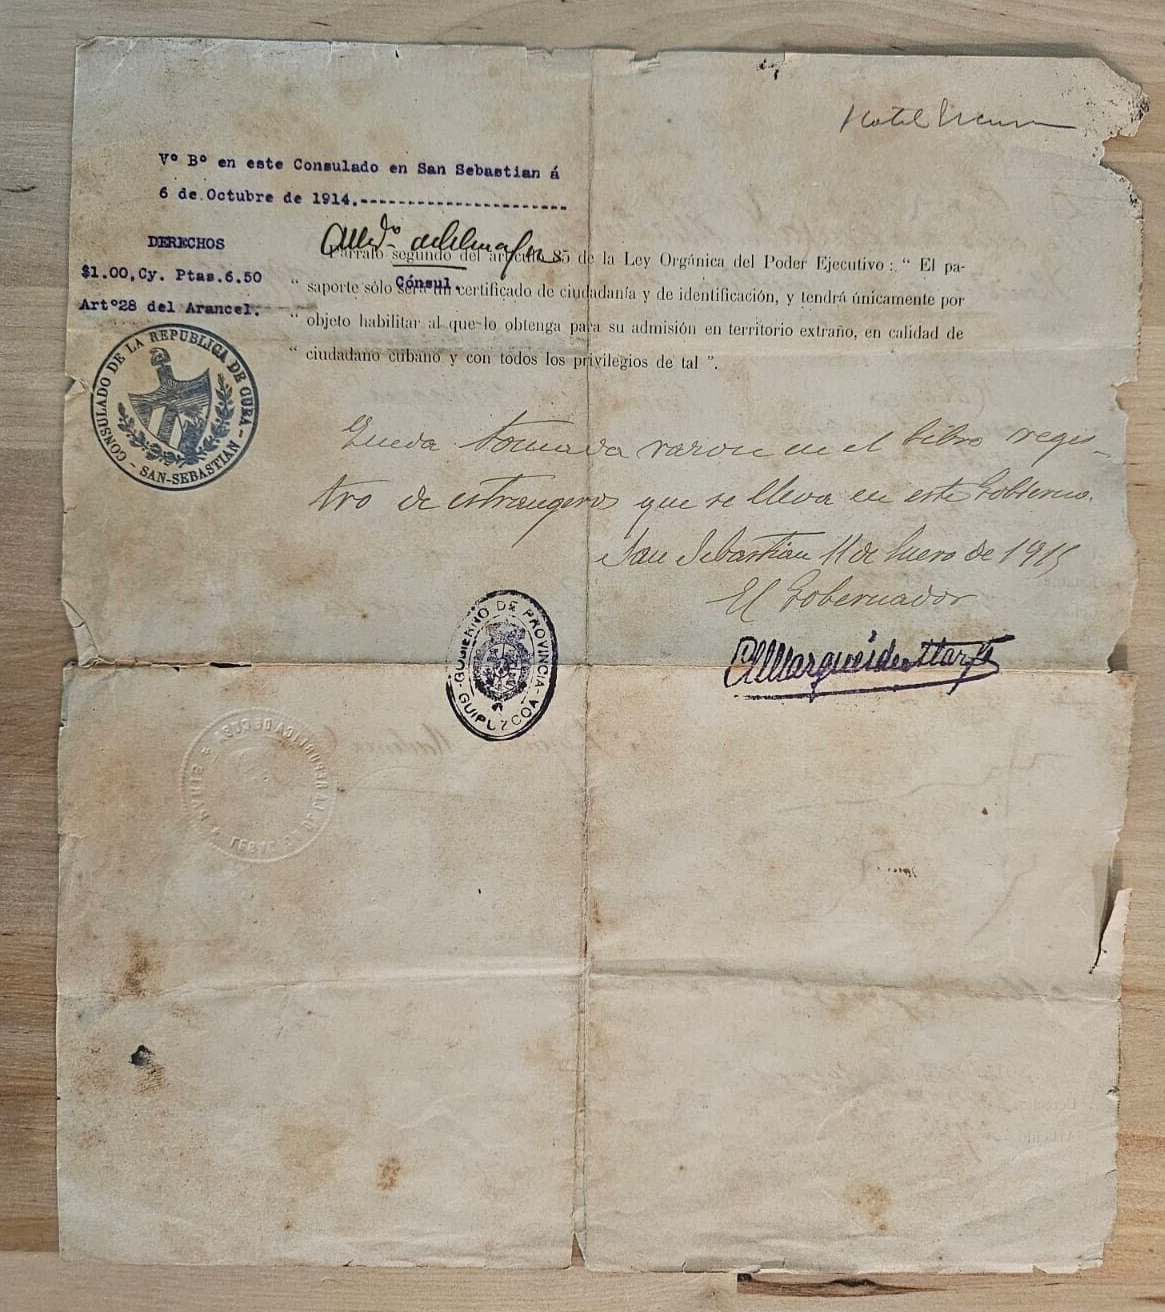 Hotel
Vº Bº en este Consulado en San Sebastian á
6 de Octubre de 1914.----------------------
DERECHOS
$1.00,Cy. Ptas.6.50
Artº28 del Arancel.
Cónsul.
Párrafo segundo del artículo 85 de la Ley Orgánica del Poder Ejecutivo: “ El pa-
“ saporte sólo será un certificado de ciudadanía y de identificación, y tendrá únicamente por
“ objeto habilitar al que lo obtenga para su admisión en territorio extraño, en calidad de
“ ciudadano cubano y con todos los privilegios de tal ”.
CONSULADO DE LA REPUBLICA DE CUBA - SAN-SEBASTIAN -
Queda tomada razon en el libro regis-
tro de estrangeros que se lleva en este Gobierno.
San Sebastian 11 de Enero de 1915
El Gobernador
GOBIERNO DE PROVINCIA
GUIPUZCOA